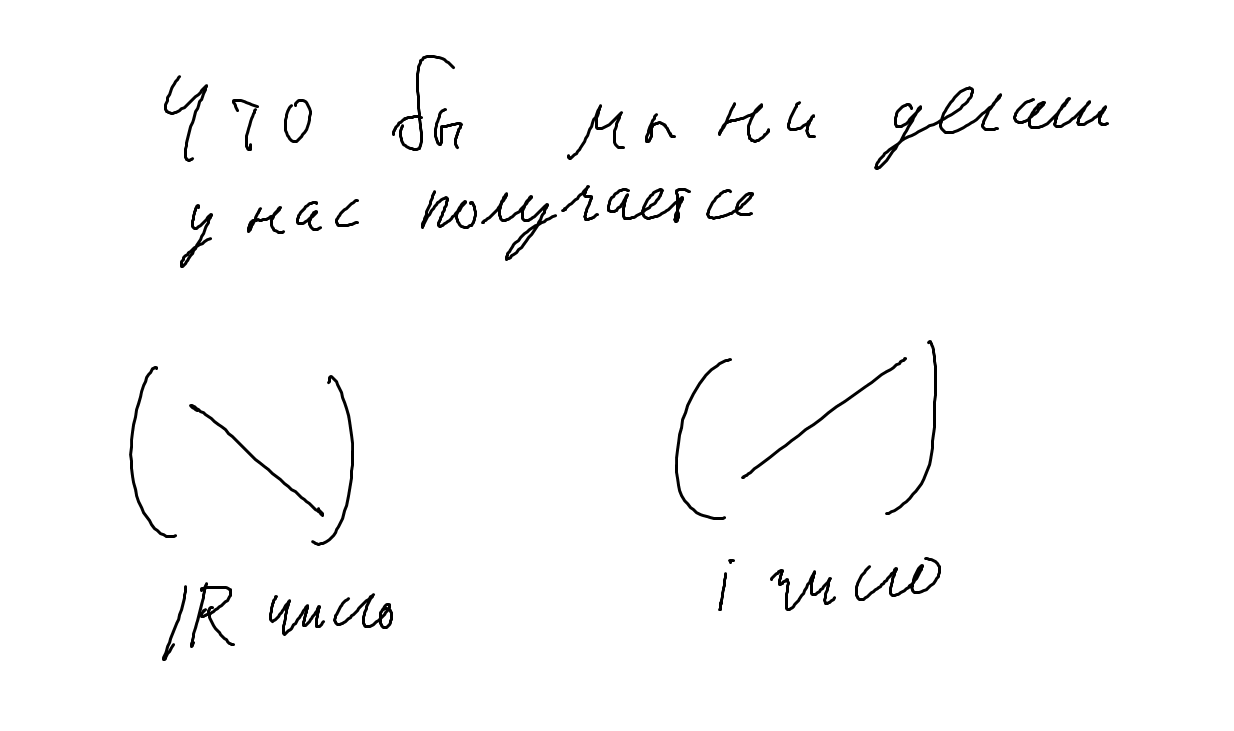 Что бы мы ни делаем
у нас получается
IR число
i число